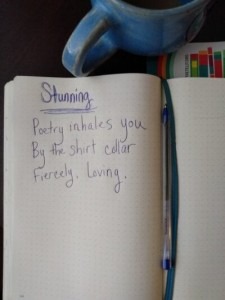 Stunning
Poetry inhales you
By the shirt collar
Fiercely. Loving.